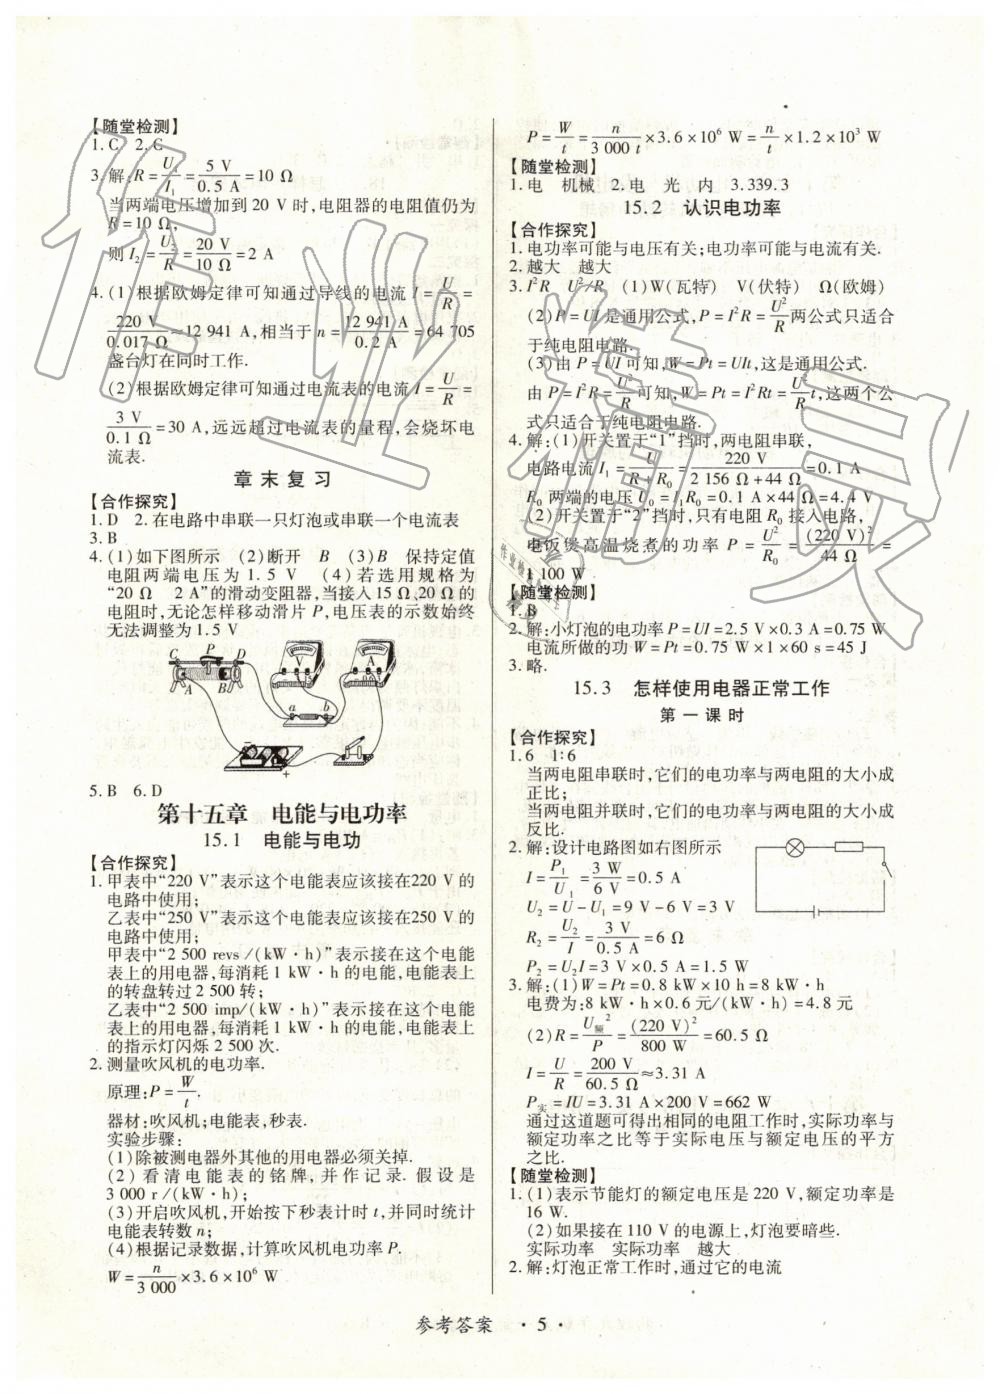 【随堂检测】
1. C　2. C
3. 解:R = U₁/I₁ = 5 V/0.5 A = 10 Ω
当两端电压增加到 20 V 时,电阻器的电阻值仍为
R = 10 Ω,
则 I₂ = U₂/R = 20 V/10 Ω = 2 A
4. (1)根据欧姆定律可知通过导线的电流 I = U/R =
220 V/0.017 Ω ≈ 12 941 A,相当于 n = 12 941 A/0.2 A = 64 705
盏台灯在同时工作.
(2)根据欧姆定律可知通过电流表的电流 I = U/R =
3 V/0.1 Ω = 30 A,远远超过电流表的量程,会烧坏电
流表.
章末复习
【合作探究】
1. D　2. 在电路中串联一只灯泡或串联一个电流表
3. B
4. (1)如下图所示　(2)断开　B　(3)B　保持定值
电阻两端电压为 1.5 V　(4)若选用规格为
“20 Ω　2 A”的滑动变阻器,当接入 15 Ω,20 Ω 的
电阻时,无论怎样移动滑片 P,电压表的示数始终
无法调整为 1.5 V
C P D V A
A B a b
+
5. B　6. D
第十五章　电能与电功率
15.1　电能与电功
【合作探究】
1. 甲表中“220 V”表示这个电能表应该接在220 V 的
电路中使用;
乙表中“250 V”表示这个电能表应该接在250 V 的
电路中使用;
甲表中“2 500 revs/(kW·h)”表示接在这个电能
表上的用电器,每消耗 1 kW·h 的电能,电能表上
的转盘转过 2 500 转;
乙表中“2 500 imp/(kW·h)”表示接在这个电能
表上的用电器,每消耗 1 kW·h 的电能,电能表上
的指示灯闪烁 2 500 次.
2. 测量吹风机的电功率.
原理:P = W/t.
器材:吹风机;电能表,秒表.
实验步骤:
(1)除被测电器外其他的用电器必须关掉.
(2)看清电能表的铭牌,并作记录. 假设是
3 000 r/(kW·h);
(3)开启吹风机,开始按下秒表计时 t,并同时统计
电能表转数 n;
(4)根据记录数据,计算吹风机电功率 P.
W = n/3 000 × 3.6 × 10⁶ W
P = W/t = n/3 000 t × 3.6 × 10⁶ W = n/t × 1.2 × 10³ W
【随堂检测】
1. 电　机械　2. 电　光　内　3. 339.3
15.2　认识电功率
【合作探究】
1. 电功率可能与电压有关;电功率可能与电流有关.
2. 越大　越大
3. I²R　U²/R　(1)W(瓦特)　V(伏特)　Ω(欧姆)
(2)P = UI 是通用公式,P = I²R = U²/R 两公式只适合
于纯电阻电路.
(3)由 P = UI 可知,W = Pt = UIt,这是通用公式.
由 P = I²R = U²/R 可知,W = Pt = I²Rt = U²/R t,这两个公
式只适合于纯电阻电路.
4. 解:(1)开关置于“1”挡时,两电阻串联,
电路电流 I₁ = U/R + R₀ = 220 V/2 156 Ω + 44 Ω = 0.1 A
R₀ 两端的电压 U₀ = I₁R₀ = 0.1 A × 44 Ω = 4.4 V
(2)开关置于“2”挡时,只有电阻 R₀ 接入电路,
电饭煲高温烧煮的功率 P = U²/R₀ = (220 V)²/44 Ω =
1 100 W
【随堂检测】
1. B
2. 解:小灯泡的电功率 P = UI = 2.5 V × 0.3 A = 0.75 W
电流所做的功 W = Pt = 0.75 W × 1 × 60 s = 45 J
3. 略.
15.3　怎样使用电器正常工作
第一课时
【合作探究】
1. 6　1∶6
当两电阻串联时,它们的电功率与两电阻的大小成
正比;
当两电阻并联时,它们的电功率与两电阻的大小成
反比.
2. 解:设计电路图如右图所示
I = P₁/U₁ = 3 W/6 V = 0.5 A
U₂ = U − U₁ = 9 V − 6 V = 3 V
R₂ = U₂/I = 3 V/0.5 A = 6 Ω
P₂ = U₂I = 3 V × 0.5 A = 1.5 W
3. 解:(1)W = Pt = 0.8 kW × 10 h = 8 kW·h
电费为:8 kW·h × 0.6 元/(kW·h) = 4.8 元
(2)R = U额²/P = (220 V)²/800 W = 60.5 Ω
I = U/R = 200 V/60.5 Ω ≈ 3.31 A
P实 = IU = 3.31 A × 200 V = 662 W
通过这道题可得出相同的电阻工作时,实际功率与
额定功率之比等于实际电压与额定电压的平方
之比.
【随堂检测】
1. (1)表示节能灯的额定电压是 220 V,额定功率是
16 W.
(2)如果接在 110 V 的电源上,灯泡要暗些.
实际功率　实际功率　越大
2. 解:灯泡正常工作时,通过它的电流
参考答案　·　5　·
作业精灵